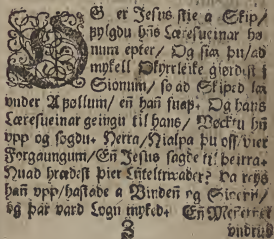 OG er Jesus stie a Skip/
fylgdu hñs Læresueinar hø
num epter/ Og siæ þu/ ad
mykell Okyrrleike giørdist j
Sionum/ so ad Skiped læ
vnder Aføllum/ eñ hañ suaf. Og hans
Læresueinar geingu til hans/ Vøcktu hñ
vpp og sogdu. Herra/ Hialpa þu oss/ vier
Forgaungum/ Eñ Jesus sagde til þeirra.
Huad hrædest þier Lüteltrwader? Þa reys
hañ vpp/ hastade a Vinden og
og þar vard Logn myked. Eñ
vndrud